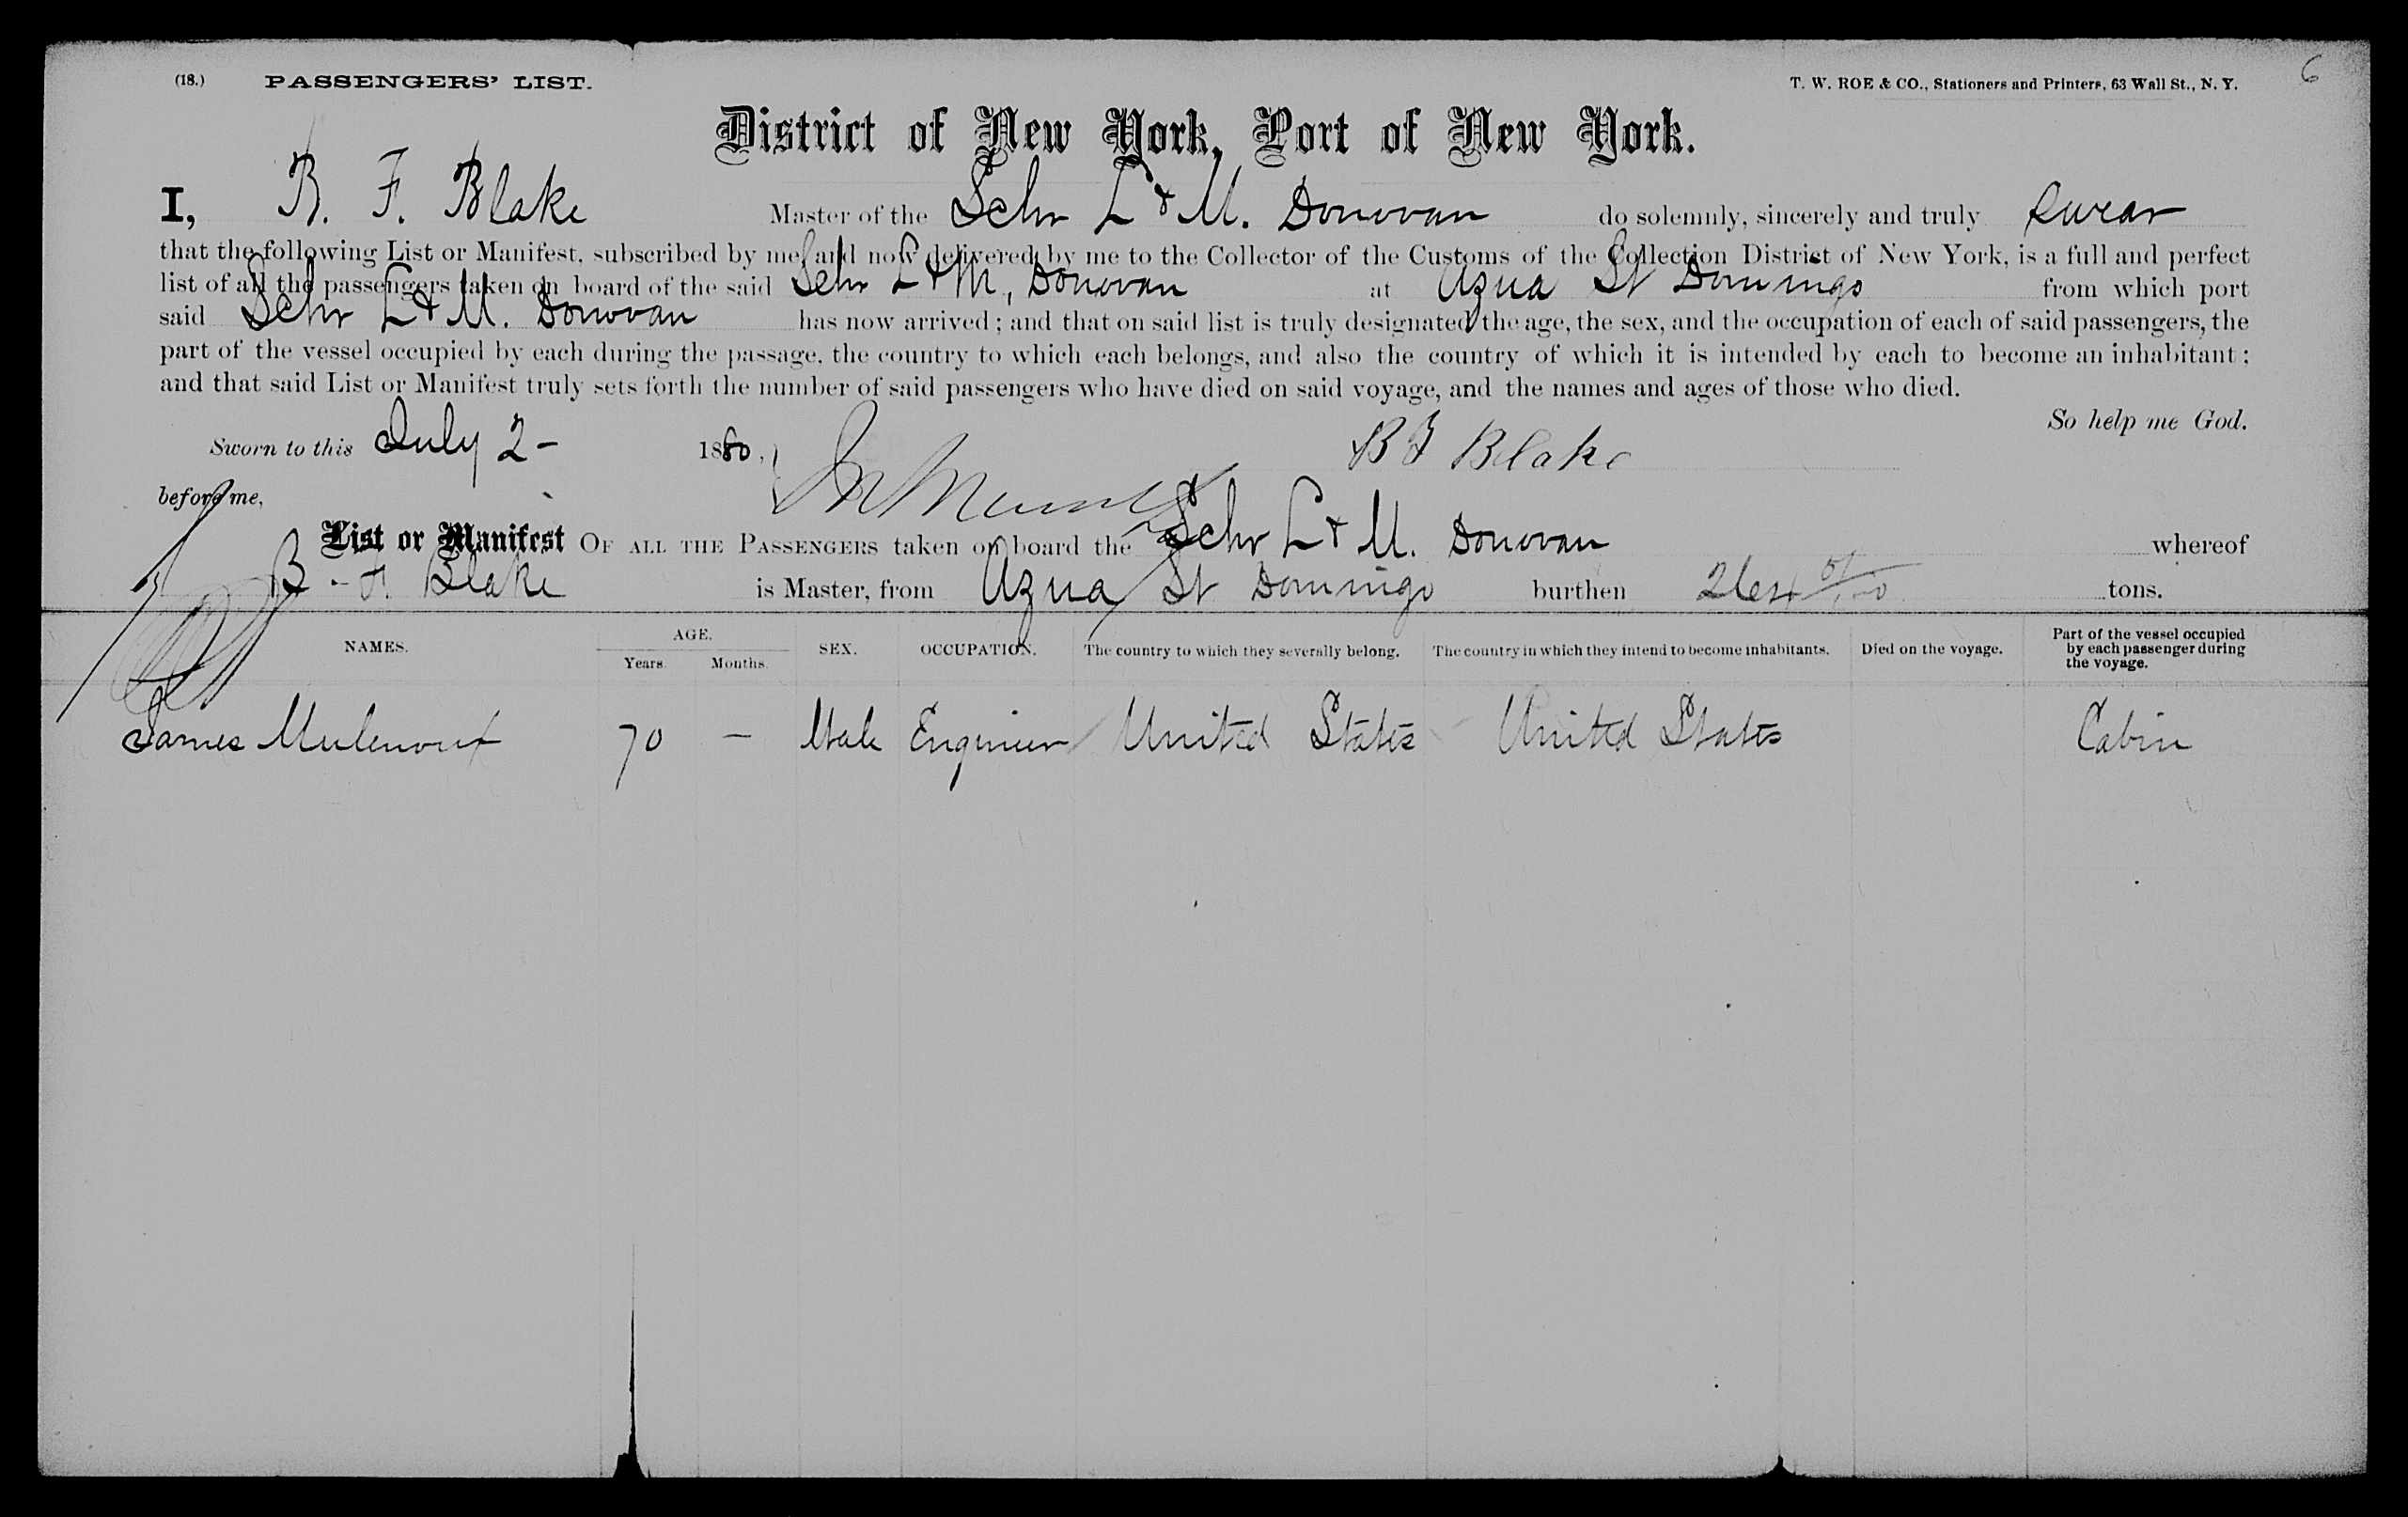 (18.) PASSENGERS' LIST. T. W. ROE & CO., Stationers and Printers, 63 Wall St., N. Y. 6
District of New York, Port of New York.
I, B. F. Blake Master of the Schr L & M. Donovan do solemnly, sincerely and truly swear
that the following List or Manifest, subscribed by me, and now delivered by me to the Collector of the Customs of the Collection District of New York, is a full and perfect
list of all the passengers taken on board of the said Schr L & M, Donovan at Azua St Domingo from which port
said Schr L & M. Donovan has now arrived; and that on said list is truly designated the age, the sex, and the occupation of each of said passengers, the
part of the vessel occupied by each during the passage, the country to which each belongs, and also the country of which it is intended by each to become an inhabitant;
and that said List or Manifest truly sets forth the number of said passengers who have died on said voyage, and the names and ages of those who died.
So help me God.
Sworn to this July 2 - 1880, B F Blake
before me,
List or Manifest OF ALL THE PASSENGERS taken on board the Schr L & M. Donovan whereof
B. F. Blake is Master, from Azua St Domingo burthen tons.
NAMES. AGE. Years. Months. SEX. OCCUPATION. The country to which they severally belong. The country in which they intend to become inhabitants. Died on the voyage. Part of the vessel occupied by each passenger during the voyage.
James 70 — Male Engineer United States United States Cabin